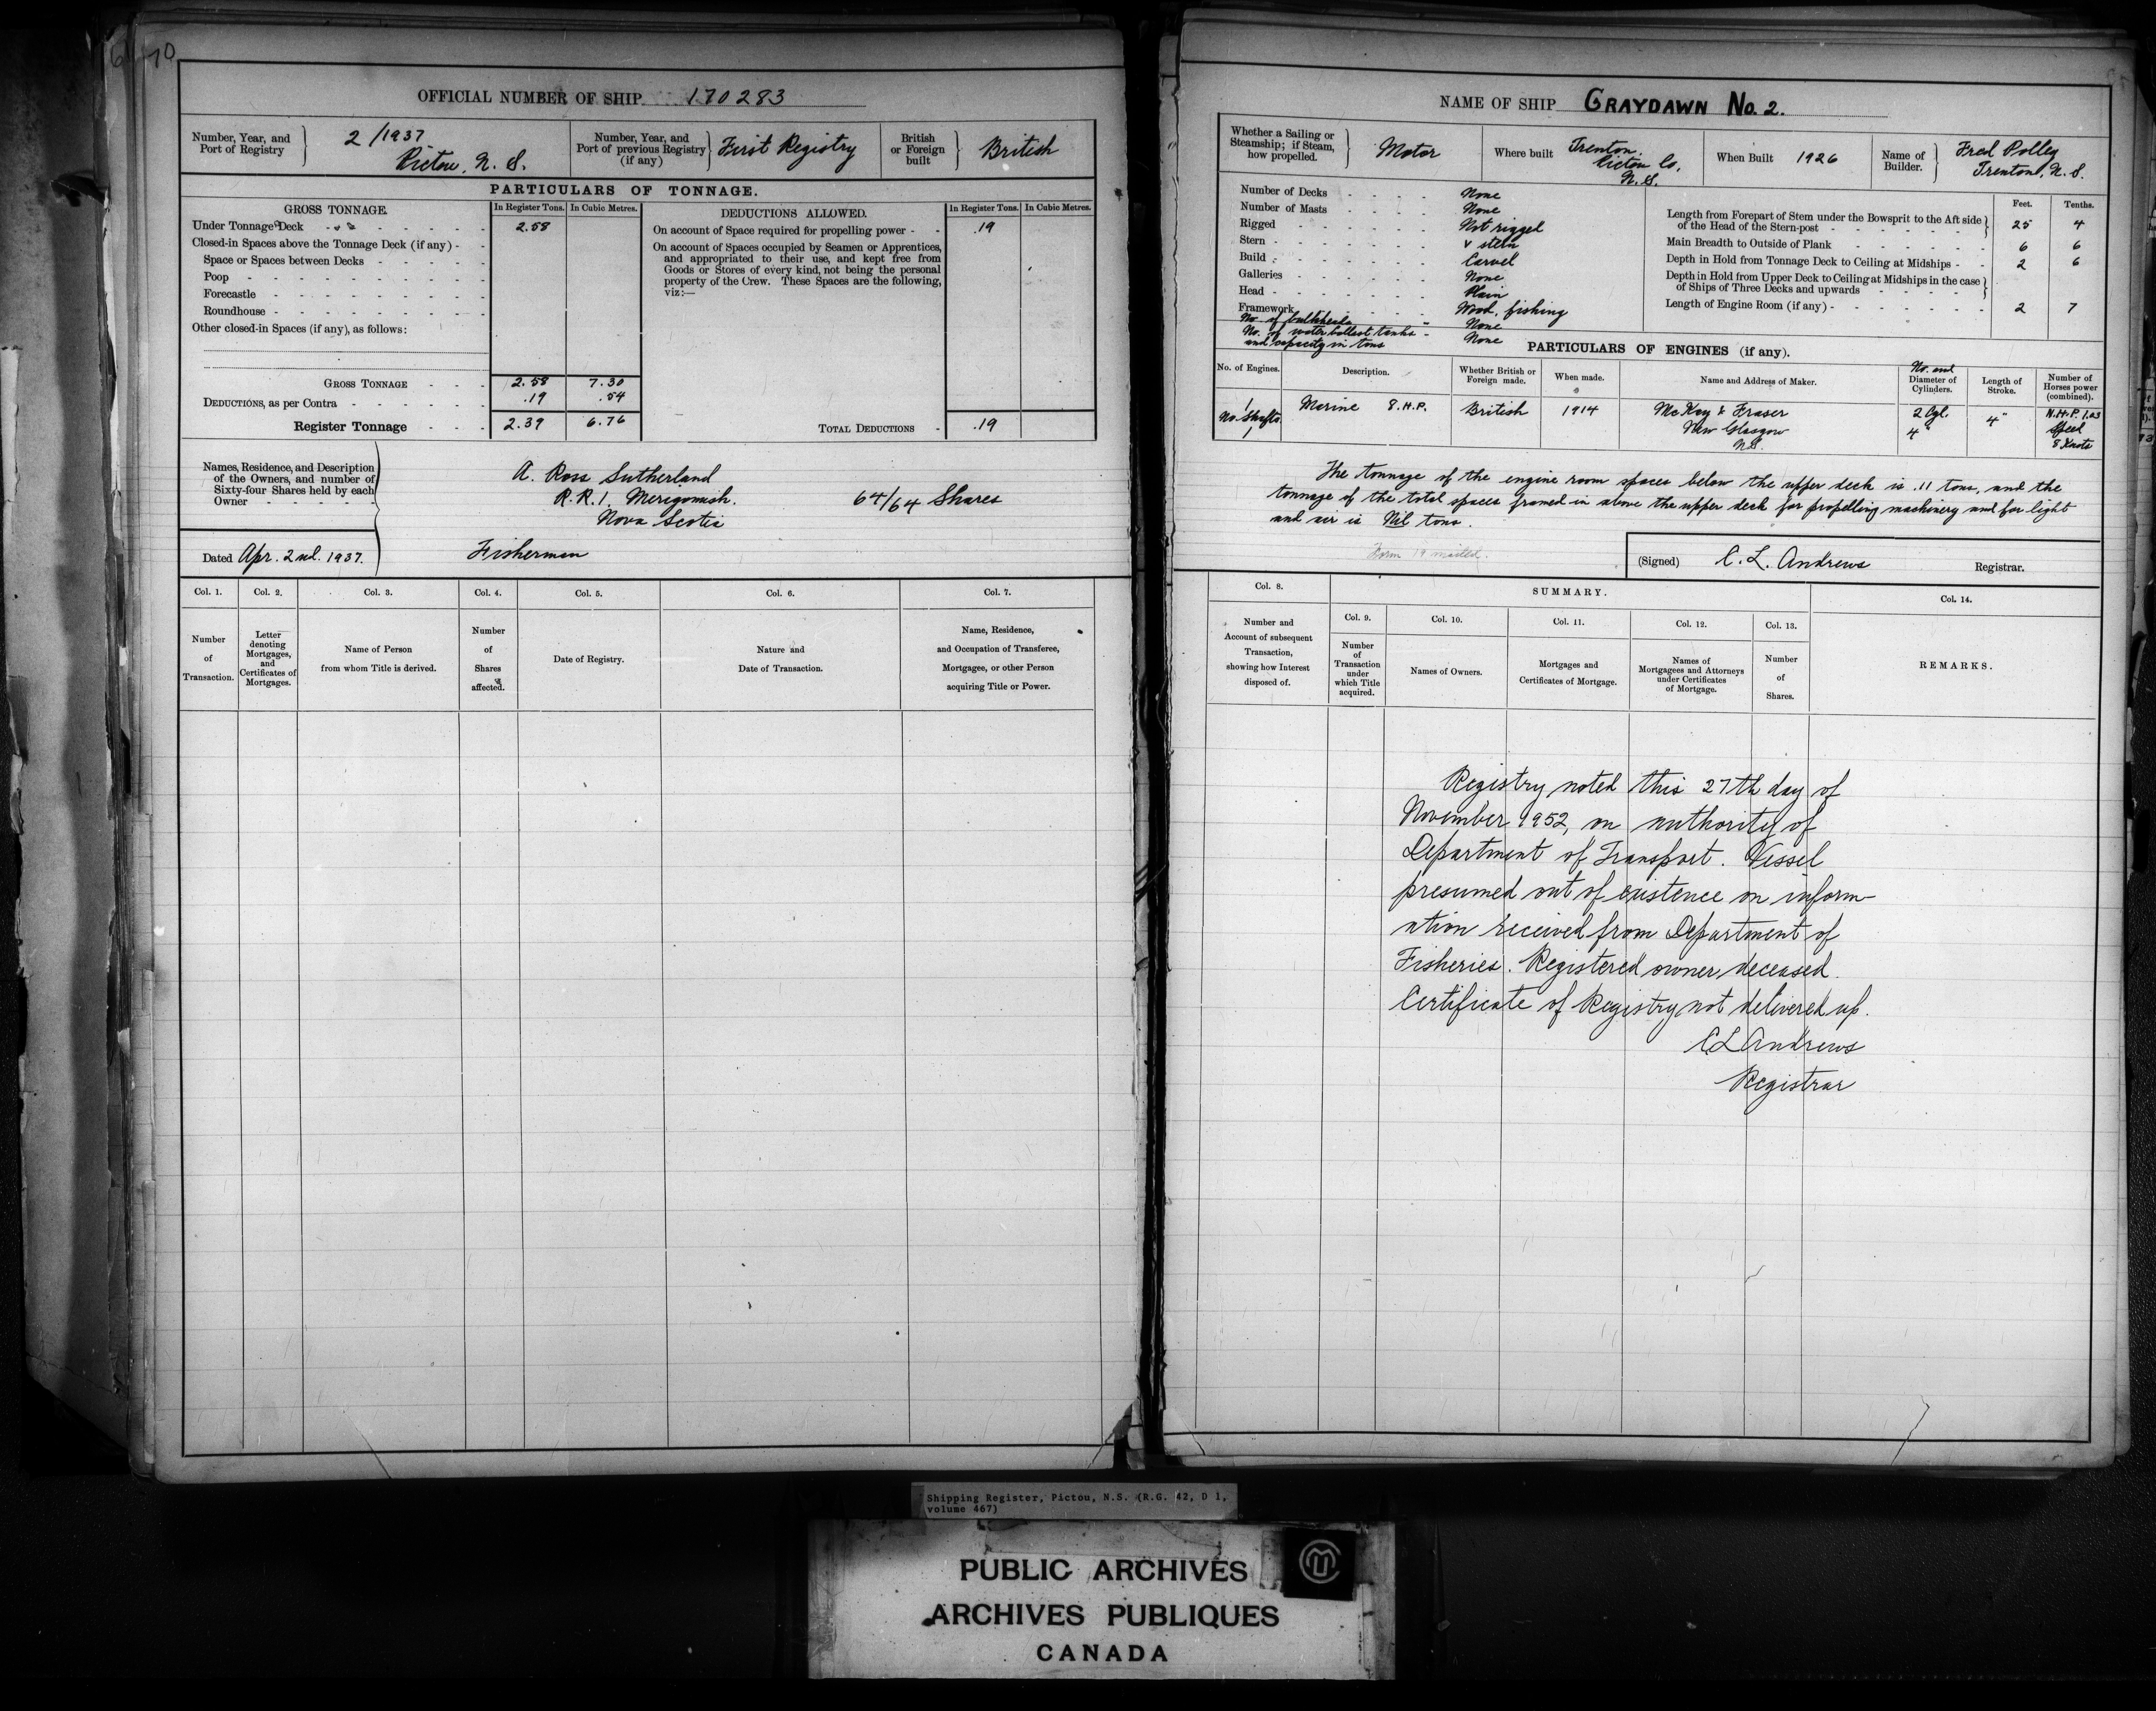 70
OFFICIAL NUMBER OF SHIP 170283
Number, Year, and Port of Registry
2/1937
Pictou, N. S.
Number, Year, and Port of previous Registry (if any)
First Registry
British or Foreign built
British
PARTICULARS OF TONNAGE.
GROSS TONNAGE.
In Register Tons.
In Cubic Metres.
DEDUCTIONS ALLOWED.
In Register Tons.
In Cubic Metres.
Under Tonnage Deck 2.58
Closed-in Spaces above the Tonnage Deck (if any)
Space or Spaces between Decks
Poop
Forecastle
Roundhouse
Other closed-in Spaces (if any), as follows:
On account of Space required for propelling power .19
On account of Spaces occupied by Seamen or Apprentices,
and appropriated to their use, and kept free from
Goods or Stores of every kind, not being the personal
property of the Crew. These Spaces are the following,
viz:—
GROSS TONNAGE 2.58 7.30
DEDUCTIONS, as per Contra .19 .54
Register Tonnage 2.39 6.76
TOTAL DEDUCTIONS .19
Names, Residence, and Description
of the Owners, and number of
Sixty-four Shares held by each
Owner
A. Ross Sutherland
R.R.1, Merigomish. 64/64 Shares
Nova Scotia
Dated Apr. 2nd. 1937.
Fisherman
Col. 1.
Col. 2.
Col. 3.
Col. 4.
Col. 5.
Col. 6.
Col. 7.
Number of Transaction.
Letter denoting Mortgages, and Certificates of Mortgages.
Name of Person from whom Title is derived.
Number of Shares affected.
Date of Registry.
Nature and Date of Transaction.
Name, Residence, and Occupation of Transferee, Mortgagee, or other Person acquiring Title or Power.
NAME OF SHIP GRAYDAWN No. 2.
Whether a Sailing or Steamship; if Steam, how propelled.
Motor
Where built
Trenton
Pictou Co,
N. S.
When Built 1926
Name of Builder.
Fred Polley
Trenton, N. S.
Number of Decks None
Number of Masts None
Rigged Not rigged
Stern V stern
Build Carvel
Galleries None
Head Plain
Framework Wood, fishing
No. of bulkheads None
No. of water ballast tanks
and capacity in tons None
Feet.
Tenths.
Length from Forepart of Stem under the Bowsprit to the Aft side
of the Head of the Stern-post 25 4
Main Breadth to Outside of Plank 6 6
Depth in Hold from Tonnage Deck to Ceiling at Midships 2 6
Depth in Hold from Upper Deck to Ceiling at Midships in the case
of Ships of Three Decks and upwards
Length of Engine Room (if any) 2 7
PARTICULARS OF ENGINES (if any).
No. of Engines.
Description.
Whether British or Foreign made.
When made.
Name and Address of Maker.
No. and
Diameter of Cylinders.
Length of Stroke.
Number of Horses power (combined).
1
No. Shafts
1
Marine 8 H.P.
British
1914
McKay & Fraser
New Glasgow
N.S.
2 Cyl.
4"
4"
N.H.P. 1.03
Speed
8 Knots
The tonnage of the engine room spaces below the upper deck is .11 tons, and the
tonnage of the total spaces framed in above the upper deck for propelling machinery and for light
and air is Nil tons.
Form 19 mailed.
(Signed) C. L. Andrews Registrar.
Col. 8.
SUMMARY.
Col. 14.
Col. 9.
Col. 10.
Col. 11.
Col. 12.
Col. 13.
Number and Account of subsequent Transaction, showing how Interest disposed of.
Number of Transaction under which Title acquired.
Names of Owners.
Mortgages and Certificates of Mortgage.
Names of Mortgagees and Attorneys under Certificates of Mortgage.
Number of Shares.
REMARKS.
Registry noted this 27th day of
November 1952, on authority of
Department of Transport. Vessel
presumed out of existence on inform-
ation received from Department of
Fisheries. Registered owner deceased.
Certificate of Registry not delivered up.
C L Andrews
Registrar
Shipping Register, Pictou, N.S. (R.G. 42, D 1,
volume 467)
PUBLIC ARCHIVES
ARCHIVES PUBLIQUES
CANADA